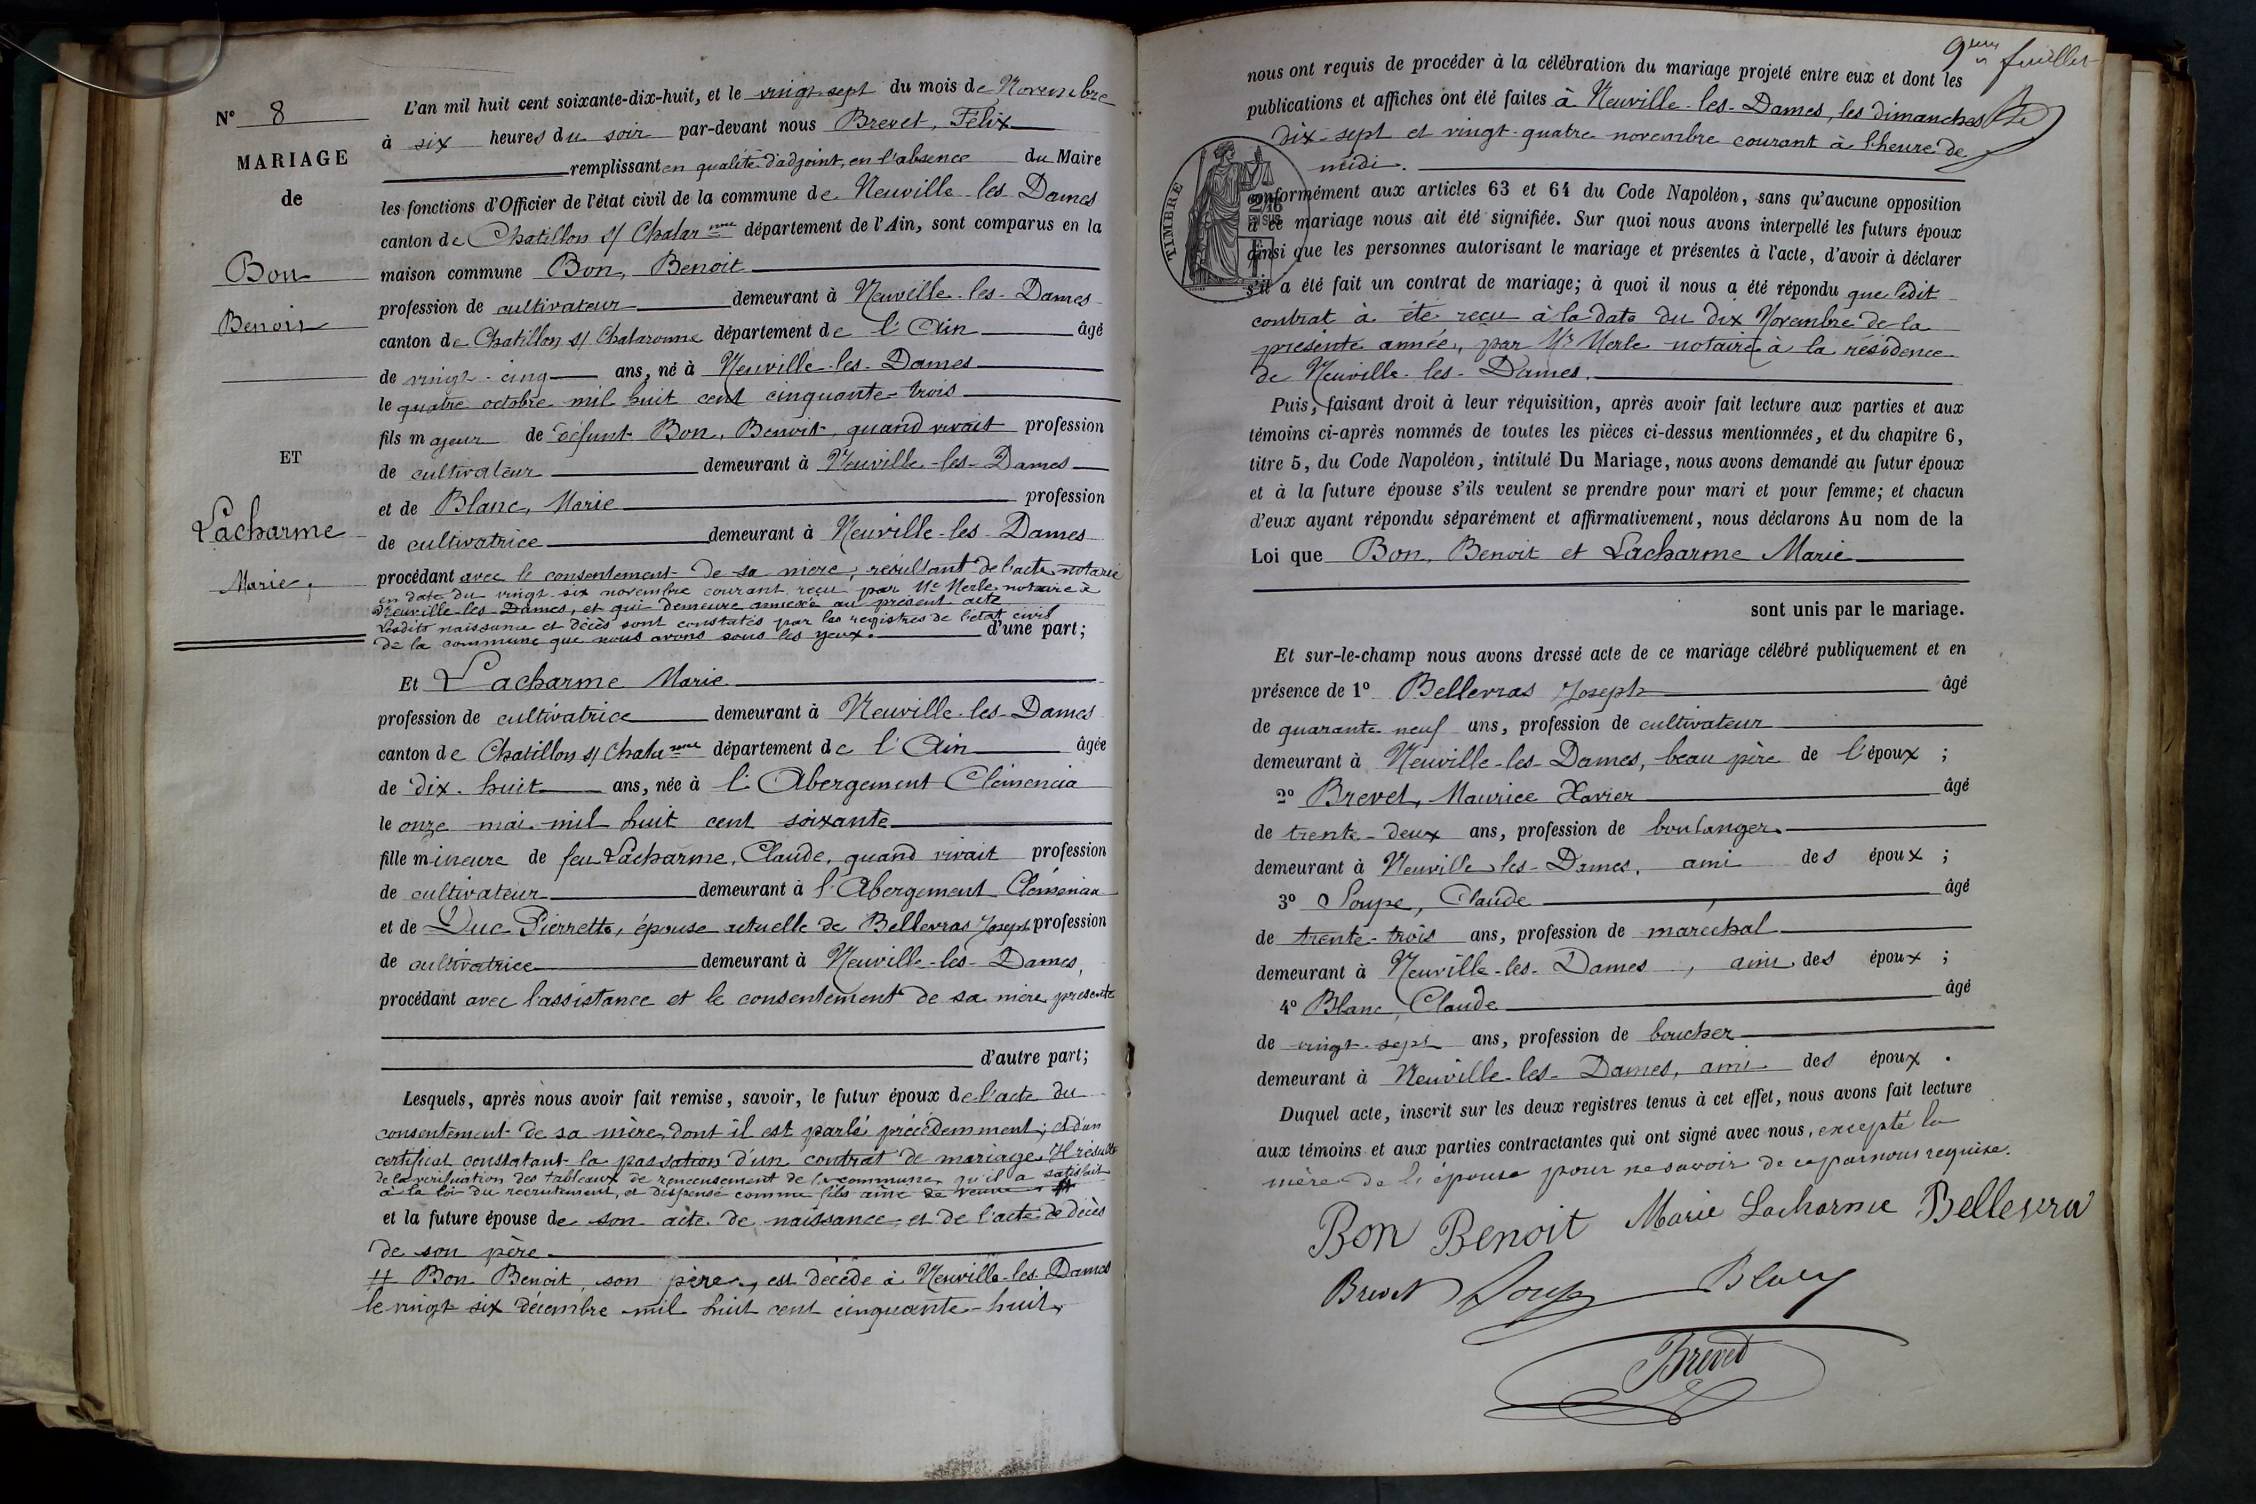 N° 8
MARIAGE
de
Bon
Benoit
ET
Lacharme
Marie.
L'an mil huit cent soixante-dix-huit, et le vingt sept du mois de Novembre
à six heures du soir par-devant nous Brevet, Félix
remplissant en qualité d'adjoint, en l'absence du Maire
les fonctions d'Officier de l'état civil de la commune de Neuville les Dames
canton de Chatillon s/ Chalar nne département de l'Ain, sont comparus en la
maison commune Bon, Benoit
profession de cultivateur demeurant à Neuville-les-Dames
canton de Chatillon s/ Chalaronne département de l'Ain âgé
de vingt-cinq ans, né à Neuville-les-Dames
le quatre octobre mil huit cent cinquante-trois
fils majeur de défunt Bon, Benoit, quand vivait profession
de cultivateur demeurant à Neuville-les-Dames
et de Blanc, Marie profession
de cultivatrice demeurant à Neuville-les-Dames
procédant avec le consentement de sa mère, résultant de l'acte notarié
en date du vingt-six novembre courant reçu par Me Merle notaire à
Neuville-les-Dames, et qui demeure annexé au présent acte
Lesdits naissance et décès sont constatés par les registres de l'état civil
de la commune que nous avons sous les yeux. d'une part;
Et Lacharme Marie
profession de cultivatrice demeurant à Neuville-les-Dames
canton de Chatillon s/ Chala nne département de l'Ain âgée
de dix-huit ans, née à l'Abergement Clémencia
le onze mai mil huit cent soixante
fille mineure de feu Lacharme, Claude, quand vivait profession
de cultivateur demeurant à l'Abergement Clémencia
et de Duc Pierrette, épouse actuelle de Bellevras Joseph profession
de cultivatrice demeurant à Neuville-les-Dames,
procédant avec l'assistance et le consentement de sa mère présente
d'autre part;
Lesquels, après nous avoir fait remise, savoir, le futur époux de l'acte du
consentement de sa mère, dont il est parlé précédemment; et d'un
certificat constatant la passation d'un contrat de mariage. Il résulte
de la vérification des tableaux de recensement de la commune, qu'il a satisfait
à la loi du recrutement, et dispensé comme fils aîné de veuve #
et la future épouse de son acte de naissance et de l'acte de décès
de son père.
# Bon Benoit, son père, est décédé à Neuville-les-Dames
le vingt-six décembre mil huit cent cinquante-huit.
9eme feuillet
nous ont requis de procéder à la célébration du mariage projeté entre eux et dont les
publications et affiches ont été faites à Neuville-les-Dames, les dimanches
dix-sept et vingt-quatre novembre courant à l'heure de
midi.
TIMBRE
2/10
EN SUS
conformément aux articles 63 et 64 du Code Napoléon, sans qu'aucune opposition
à ce mariage nous ait été signifiée. Sur quoi nous avons interpellé les futurs époux
ainsi que les personnes autorisant le mariage et présentes à l'acte, d'avoir à déclarer
s'il a été fait un contrat de mariage; à quoi il nous a été répondu que ledit
contrat à été reçu à la date du dix Novembre de la
présente année, par Me Merle notaire à la résidence
de Neuville-les-Dames.
Puis, faisant droit à leur réquisition, après avoir fait lecture aux parties et aux
témoins ci-après nommés de toutes les pièces ci-dessus mentionnées, et du chapitre 6,
titre 5, du Code Napoléon, intitulé Du Mariage, nous avons demandé au futur époux
et à la future épouse s'ils veulent se prendre pour mari et pour femme; et chacun
d'eux ayant répondu séparément et affirmativement, nous déclarons Au nom de la
Loi que Bon, Benoit et Lacharme Marie
sont unis par le mariage.
Et sur-le-champ nous avons dressé acte de ce mariage célébré publiquement et en
présence de 1° Bellevras Joseph âgé
de quarante neuf ans, profession de cultivateur
demeurant à Neuville-les-Dames, beau père de l'époux ;
2° Brevet, Maurice Xavier âgé
de trente-deux ans, profession de boulanger
demeurant à Neuville les-Dames, ami des époux ;
3° Soupe, Claude âgé
de trente-trois ans, profession de maréchal
demeurant à Neuville-les-Dames, ami des époux ;
4° Blanc, Claude âgé
de vingt-sept ans, profession de boucher
demeurant à Neuville-les-Dames, ami des époux .
Duquel acte, inscrit sur les deux registres tenus à cet effet, nous avons fait lecture
aux témoins et aux parties contractantes qui ont signé avec nous, excepté la
mère de l'épouse pour ne savoir de ce par nous requise.
Bon Benoit Marie Lacharme Bellevra
Brevet Soupe Blanc
Brevet